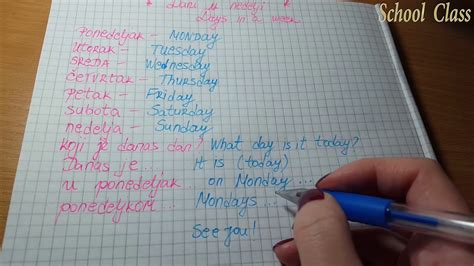 School Class
* Dani u nedelji *
Days in a week
Ponedeljak - MONDAY
UtoRAK - TUESDAY
SREDA - WEdNESDAY
čEtVRTAK - THuRSday
pEtAK - FRiday
subota - SatuRday
nedelja - Sunday
Koji je danas dan? What day is it today?
Danas je... It is (today)
u ponedeljak... on Monday...
ponedeljkom... Mondays...
See you!